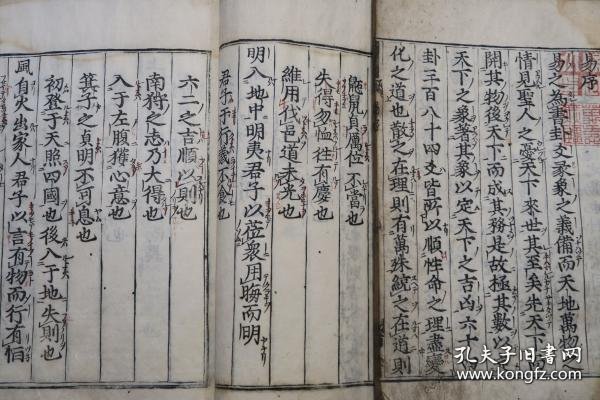 易序
易之為書卦爻彖象之義備而天地萬物之
情見聖人之憂天下來世其至矣先天下而
開其物後天下而成其務是故極其數以定
天下之象著其象以定天下之吉凶六十四
卦三百八十四爻皆所以順性命之理盡變
化之道也散之在理則有萬殊統之在道則
鼫鼠貞厲位不當也
失得勿恤往有慶也
維用伐邑道未光也
明入地中明夷君子以莅衆用晦而明
君子于行義不食也
六二之吉順以則也
南狩之志乃大得也
入于左腹獲心意也
箕子之貞明不可息也
初登于天照四國也後入于地失則也
風自火出家人君子以言有物而行有恒
孔夫子旧书网
www.kongfz.com